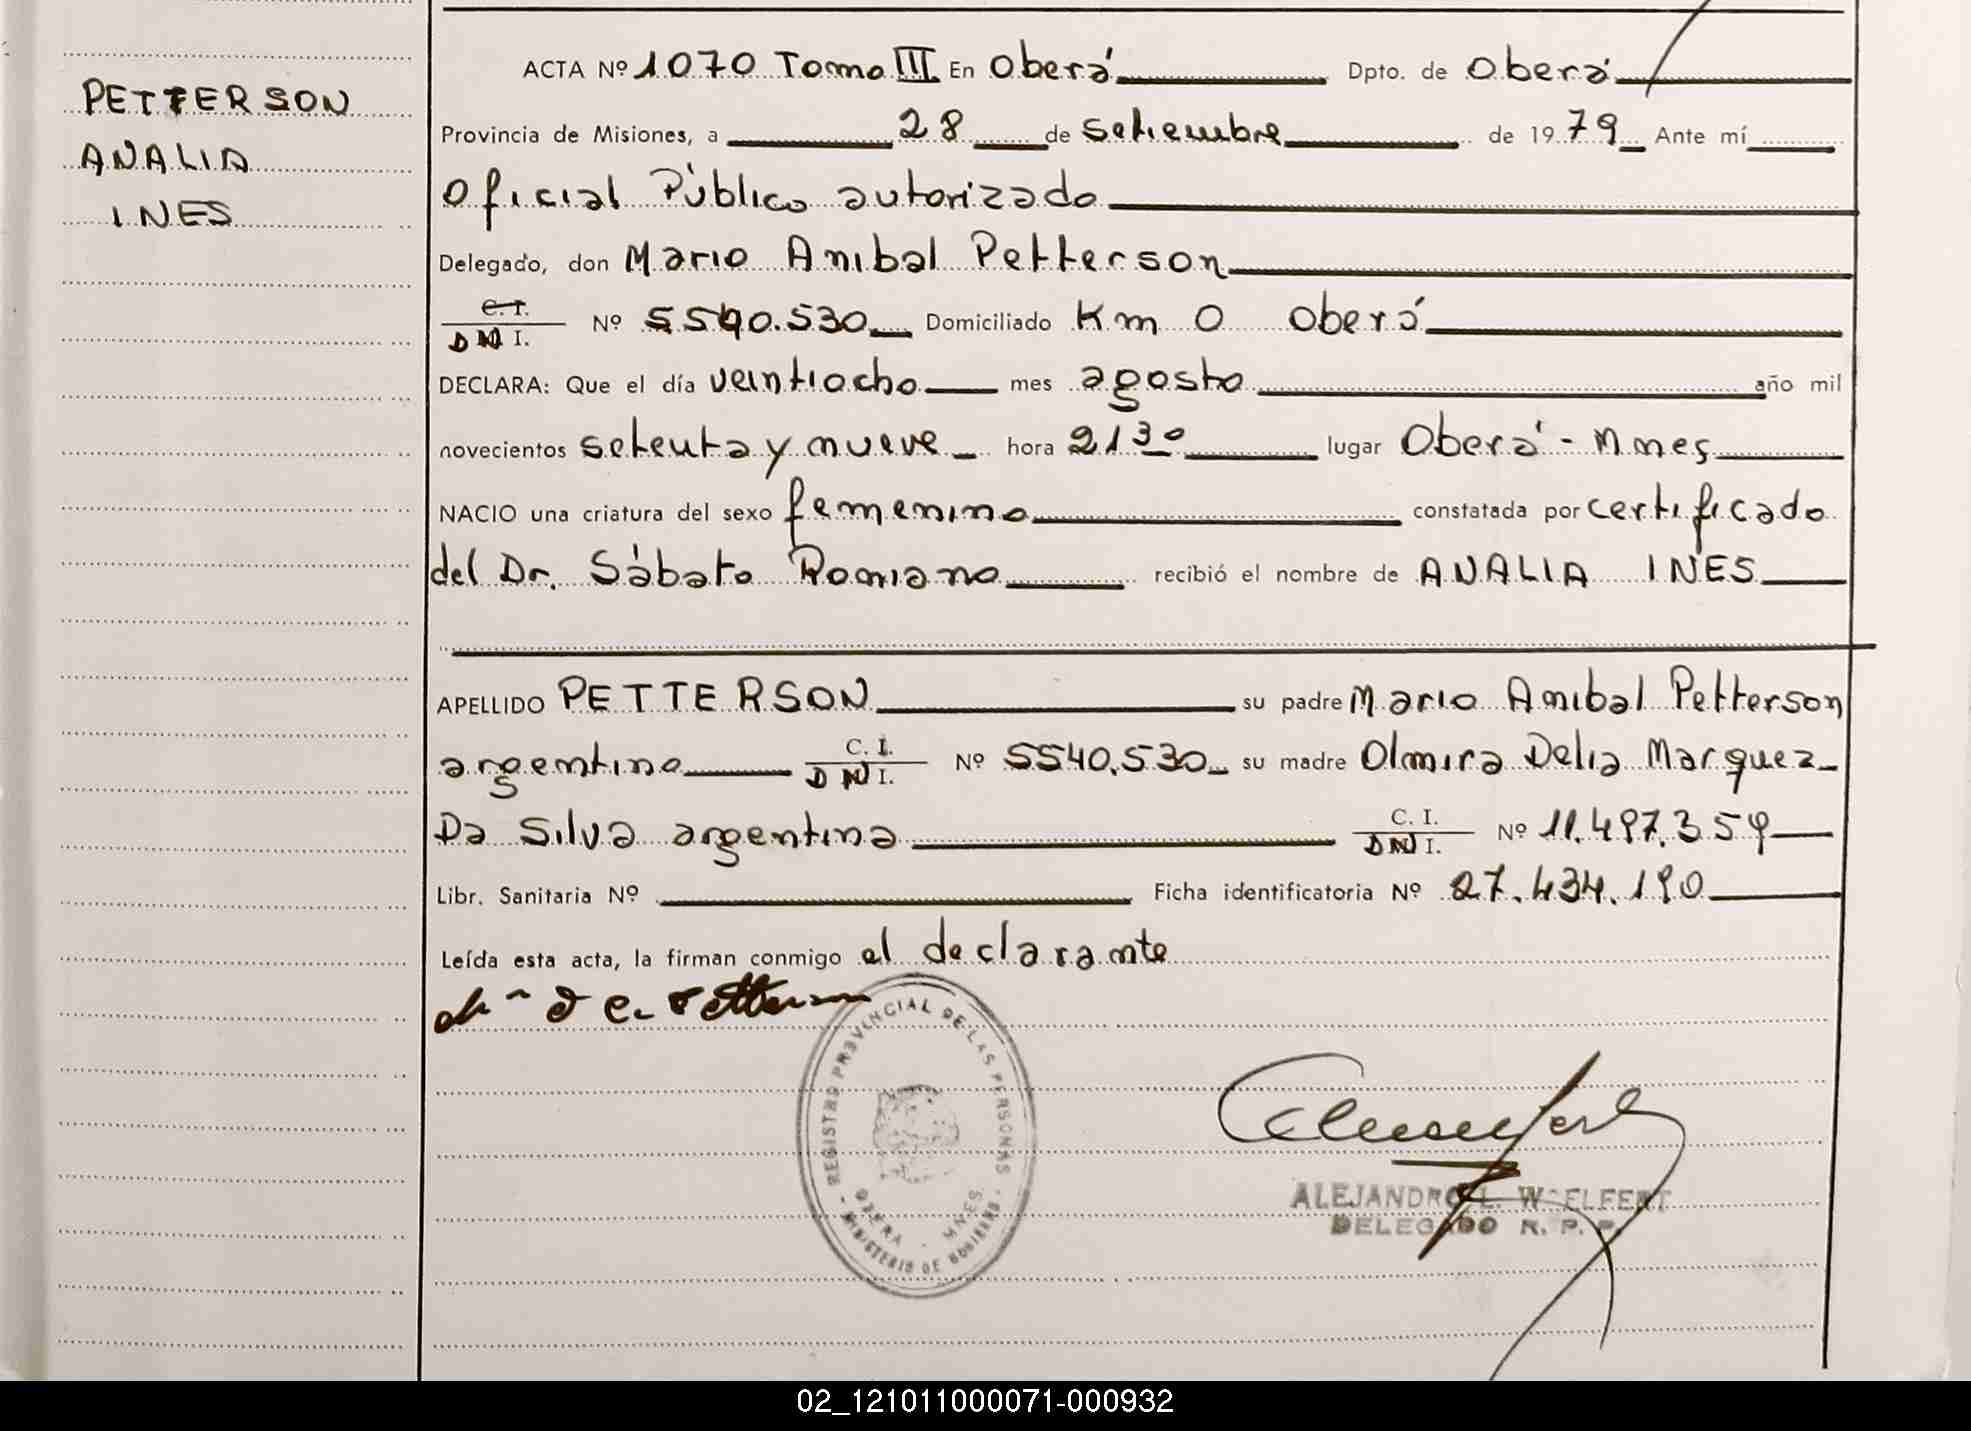 PETTERSON
ANALIA
INES
ACTA Nº 1070 Tomo III En Oberá Dpto. de Oberá
Provincia de Misiones, a 28 de setiembre de 1979 Ante mí
Oficial Público autorizado
Delegado, don Mario Anibal Petterson
C. I.
D N I. Nº 5540.530 Domiciliado Km 0 Oberá
DECLARA: Que el día veintiocho mes agosto año mil
novecientos setenta y nueve hora 21 30 lugar Oberá - Mnes
NACIO una criatura del sexo femenino constatada por certificado
del Dr. Sábato Romano recibió el nombre de ANALIA INES
APELLIDO PETTERSON su padre Mario Anibal Petterson
argentino C. I. D N I. Nº 5540.530 su madre Olmira Delia Marquez
Da Silva argentina C. I. D N I. Nº 11.497.359
Libr. Sanitaria Nº Ficha identificatoria Nº 27.434.190
Leída esta acta, la firman conmigo el declarante
REGISTRO PROVINCIAL DE LAS PERSONAS
OBERA - MNES.
MINISTERIO DE GOBIERNO
ALEJANDRO L. WOELFERT
DELEGADO R. P. P.
02_121011000071-000932